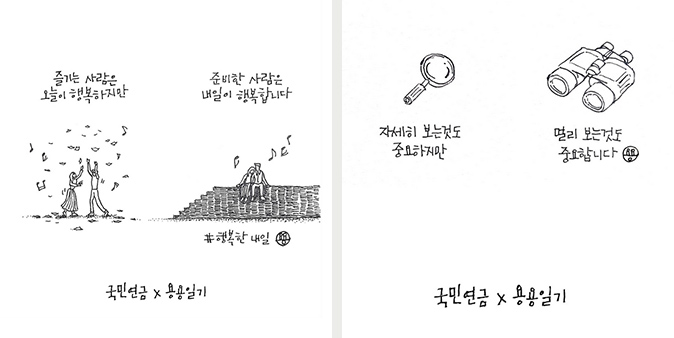 즐기는 사람은
오늘이 행복하지만
준비한 사람은
내일이 행복합니다
#행복한 내일
국민연금 x 용용일기
자세히 보는것도
중요하지만
멀리 보는것도
중요합니다
국민연금 x 용용일기